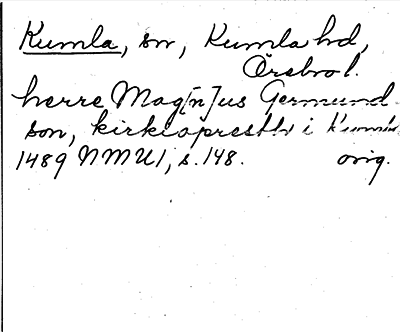 Kumla, sn, Kumla hd,
Örebro l.
herre Mag[n]us Germund
son, kirkioprestr i Kumla
1489 NMU 1, s. 148. orig.